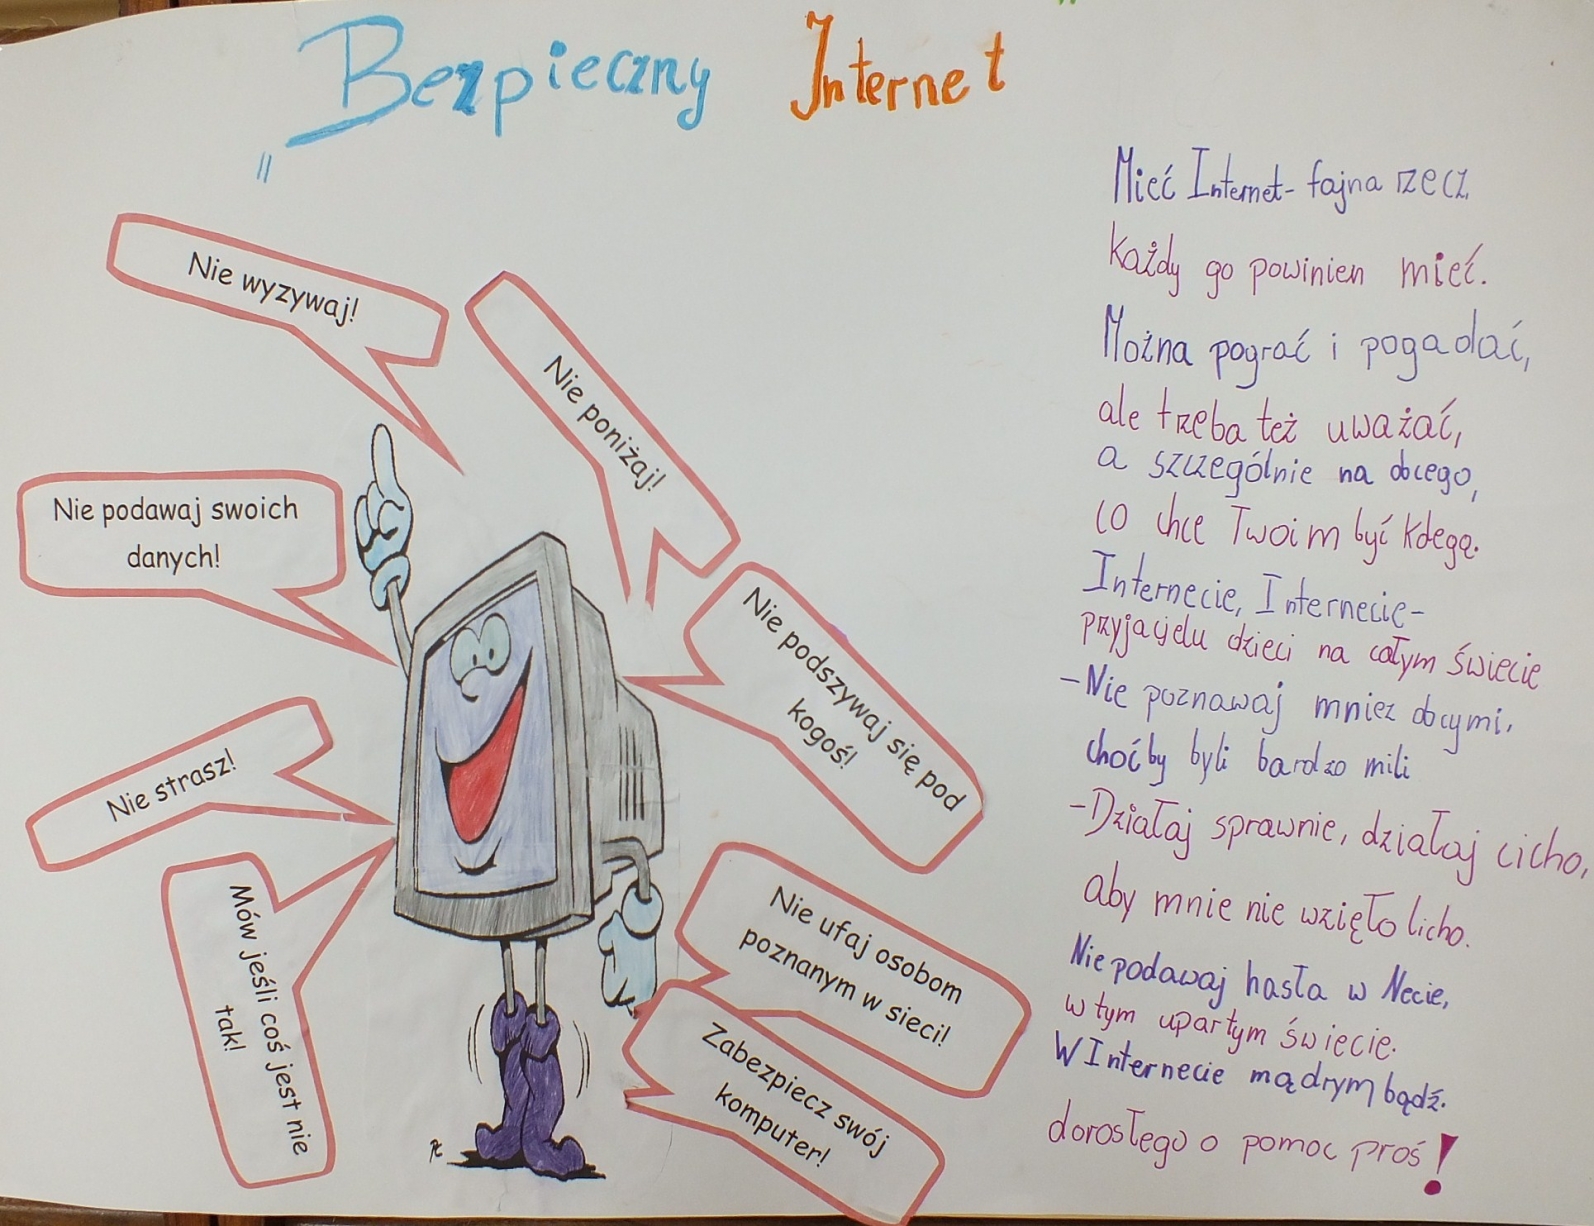 Bezpieczny Internet
Nie wyzywaj!
Nie poniżaj!
Nie podawaj swoich
danych!
Nie podszywaj się pod
kogoś!
Nie strasz!
Mów jeśli coś jest nie
tak!
Nie ufaj osobom
poznanym w sieci!
Zabezpiecz swój
komputer!
Mieć Internet- fajna rzecz
Każdy go powinien mieć.
Można pograć i pogadać,
ale trzeba też uważać,
a szczególnie na obcego,
co chce Twoim być kolegą.
Internecie, Internecie-
przyjacielu dzieci na całym świecie
-Nie poznawaj mnie z obcymi,
choćby byli bardzo mili
-Działaj sprawnie, działaj cicho,
aby mnie nie wzięło licho.
Nie podawaj hasła w Necie,
w tym upartym świecie.
W Internecie mądrym bądź.
dorosłego o pomoc proś!